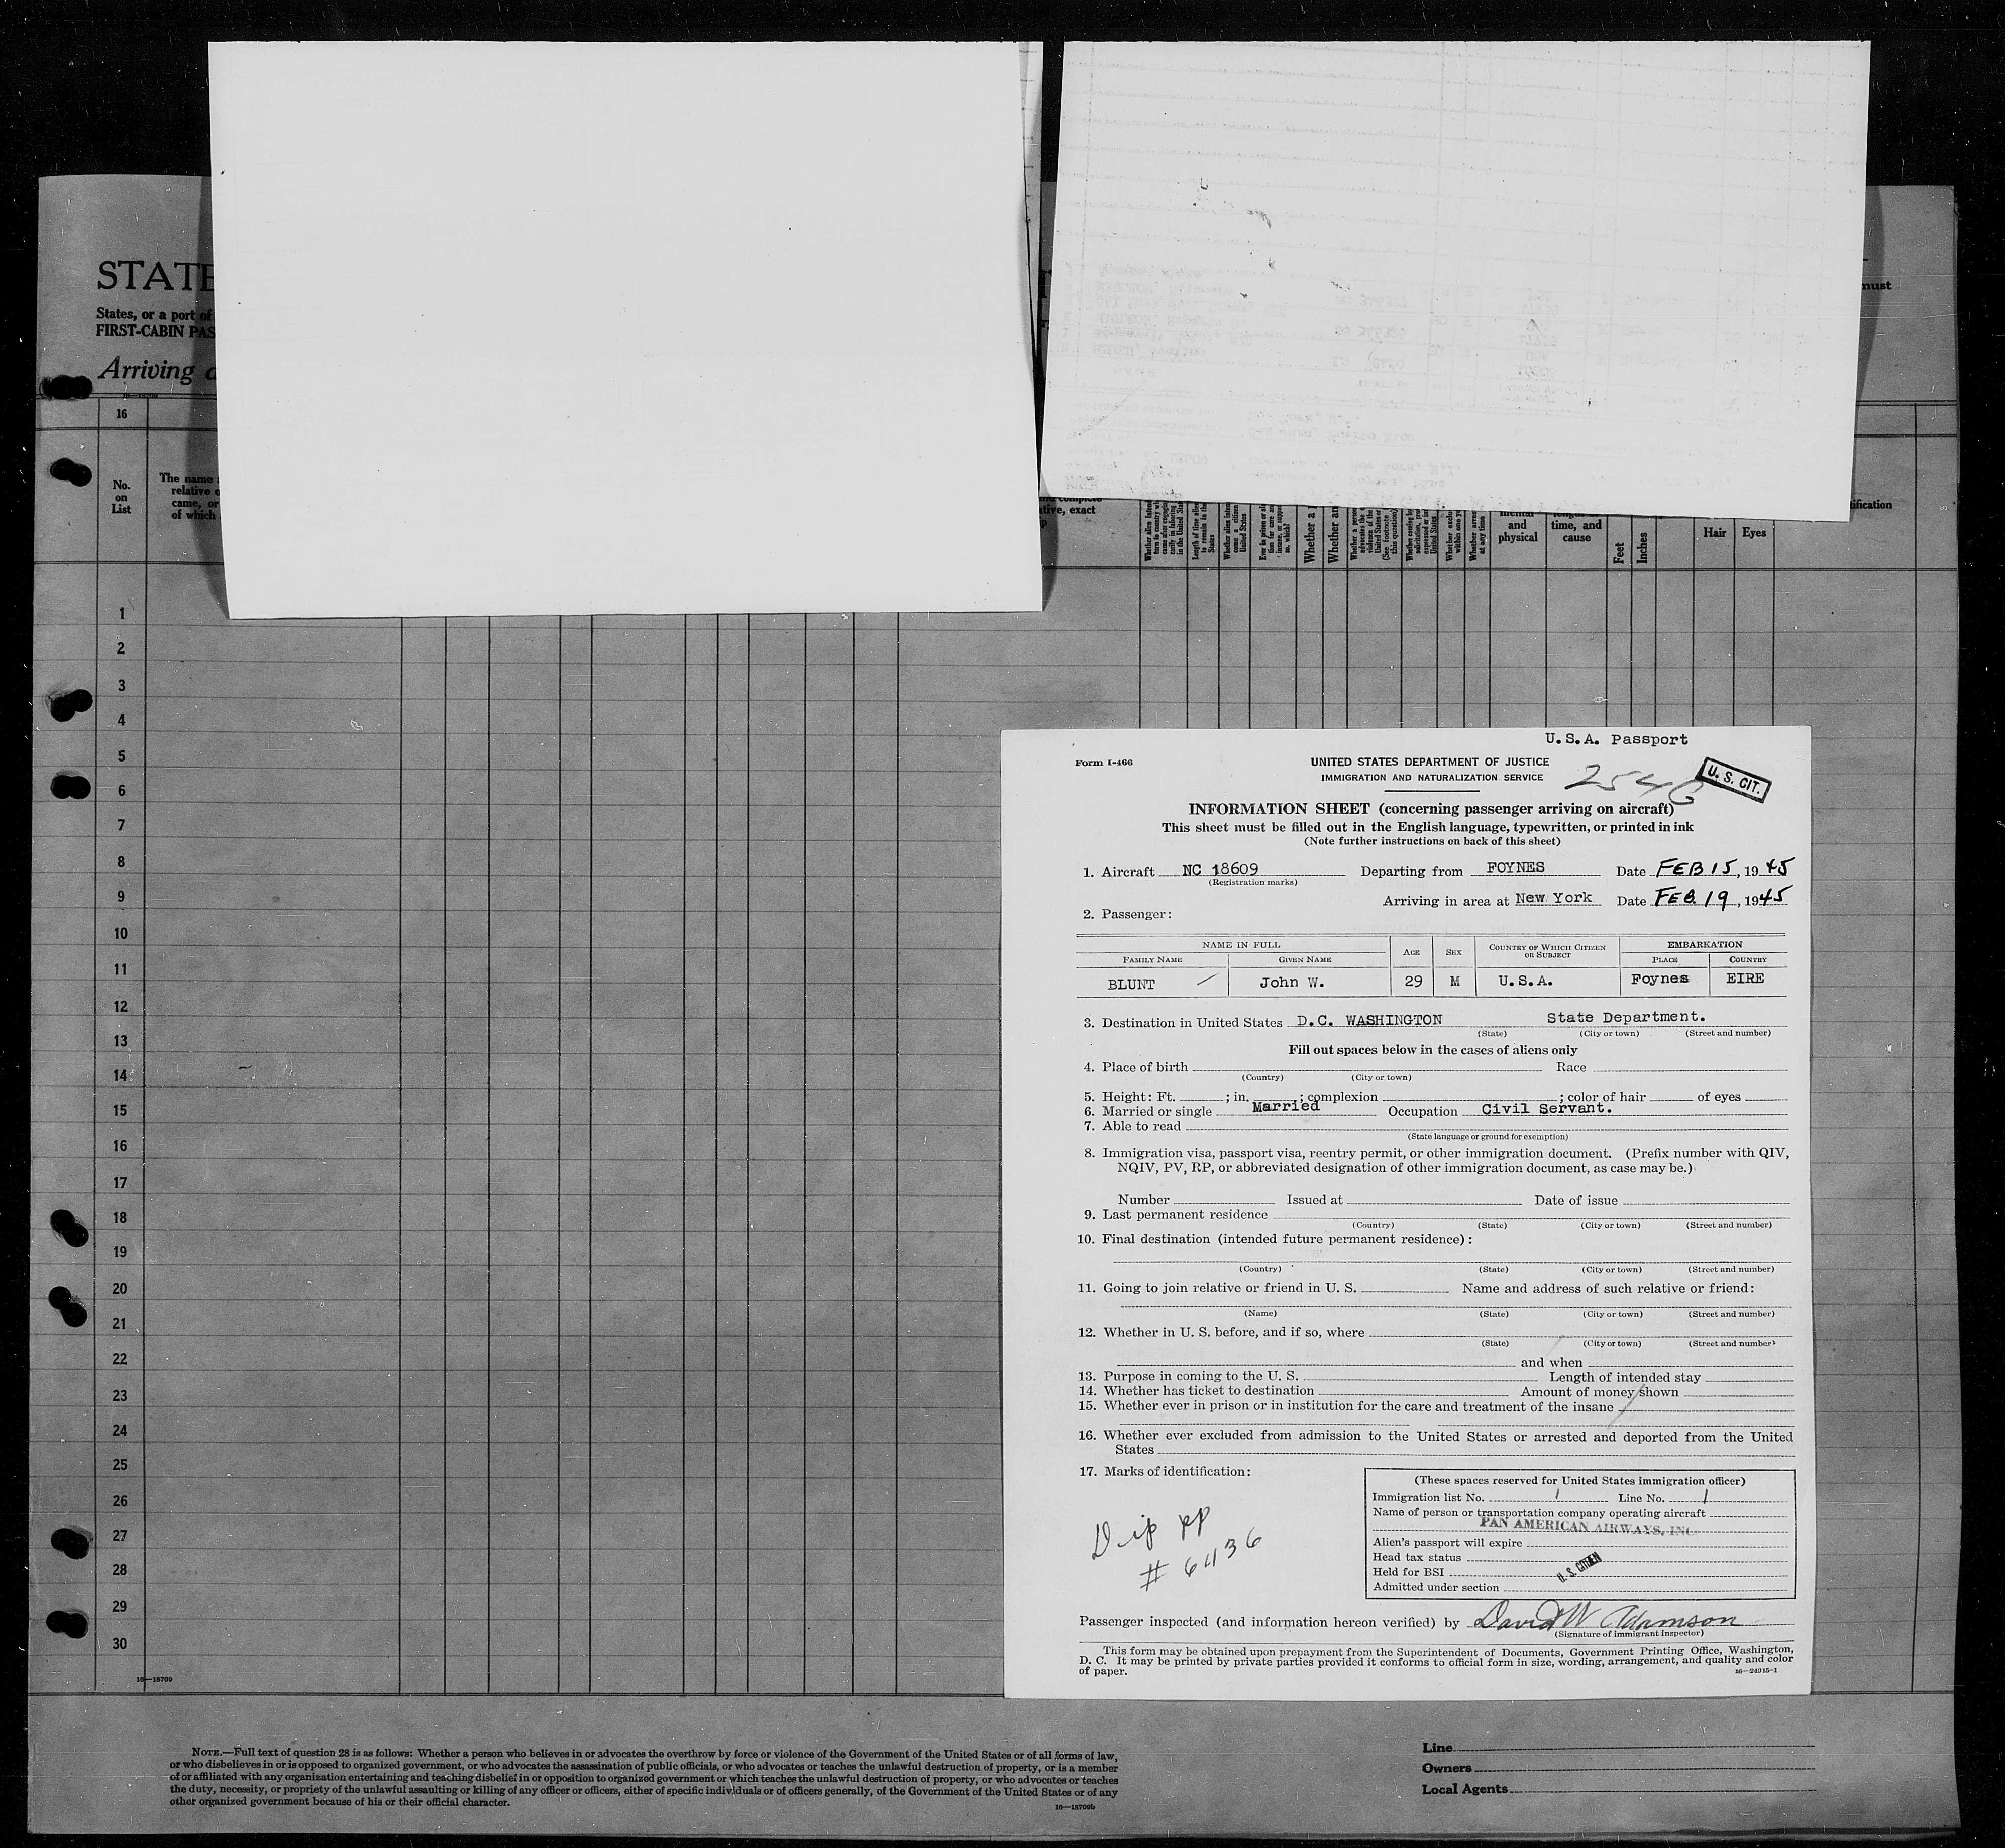 STATE
States, or a port of
FIRST-CABIN PAS
Arriving a
must
16
No.
on
List
The name
relative
came, or
of which
and complete
tive, exact
Whether a
Whether an
mental
and
physical
time, and
cause
Feet
Inches
Hair
Eyes
1
2
3
4
5
6
7
8
9
10
11
12
13
14
15
16
17
18
19
20
21
22
23
24
25
26
27
28
29
30
16—18709
U.S.A. Passport
Form I-466
UNITED STATES DEPARTMENT OF JUSTICE
IMMIGRATION AND NATURALIZATION SERVICE
2546
U. S. CIT.
INFORMATION SHEET (concerning passenger arriving on aircraft)
This sheet must be filled out in the English language, typewritten, or printed in ink
(Note further instructions on back of this sheet)
1. Aircraft NC 18609 Departing from FOYNES Date FEB 15, 1945
(Registration marks)
Arriving in area at New York Date FEB 19, 1945
2. Passenger:
NAME IN FULL AGE SEX COUNTRY OF WHICH CITIZEN OR SUBJECT EMBARKATION
FAMILY NAME GIVEN NAME PLACE COUNTRY
BLUNT John W. 29 M U.S.A. Foynes EIRE
3. Destination in United States D.C. WASHINGTON State Department.
(State) (City or town) (Street and number)
Fill out spaces below in the cases of aliens only
4. Place of birth Race
(Country) (City or town)
5. Height: Ft. ; in. ; complexion ; color of hair of eyes
6. Married or single Married Occupation Civil Servant.
7. Able to read
(State language or ground for exemption)
8. Immigration visa, passport visa, reentry permit, or other immigration document. (Prefix number with QIV,
NQIV, PV, RP, or abbreviated designation of other immigration document, as case may be.)
Number Issued at Date of issue
9. Last permanent residence
(Country) (State) (City or town) (Street and number)
10. Final destination (intended future permanent residence):
(Country) (State) (City or town) (Street and number)
11. Going to join relative or friend in U. S. Name and address of such relative or friend:
(Name) (State) (City or town) (Street and number)
12. Whether in U. S. before, and if so, where
(State) (City or town) (Street and number)
and when
13. Purpose in coming to the U. S. Length of intended stay
14. Whether has ticket to destination Amount of money shown
15. Whether ever in prison or in institution for the care and treatment of the insane
16. Whether ever excluded from admission to the United States or arrested and deported from the United
States
17. Marks of identification:
Dip pp
# 6436
(These spaces reserved for United States immigration officer)
Immigration list No. 1 Line No. 1
Name of person or transportation company operating aircraft
PAN AMERICAN AIRWAYS, INC
Alien's passport will expire
Head tax status
Held for BSI
U. S. CITIZEN
Admitted under section
Passenger inspected (and information hereon verified) by David W Adamson
(Signature of immigrant inspector)
This form may be obtained upon prepayment from the Superintendent of Documents, Government Printing Office, Washington,
D. C. It may be printed by private parties provided it conforms to official form in size, wording, arrangement, and quality and color
of paper.
16—24915-1
NOTE.—Full text of question 28 is as follows: Whether a person who believes in or advocates the overthrow by force or violence of the Government of the United States or of all forms of law,
or who disbelieves in or is opposed to organized government, or who advocates the assassination of public officials, or who advocates or teaches the unlawful destruction of property, or is a member
of or affiliated with any organization entertaining and teaching disbelief in or opposition to organized government or which teaches the unlawful destruction of property, or who advocates or teaches
the duty, necessity, or propriety of the unlawful assaulting or killing of any officer or officers, either of specific individuals or of officers generally, of the Government of the United States or of any
other organized government because of his or their official character.
16—18709b
Line
Owners
Local Agents